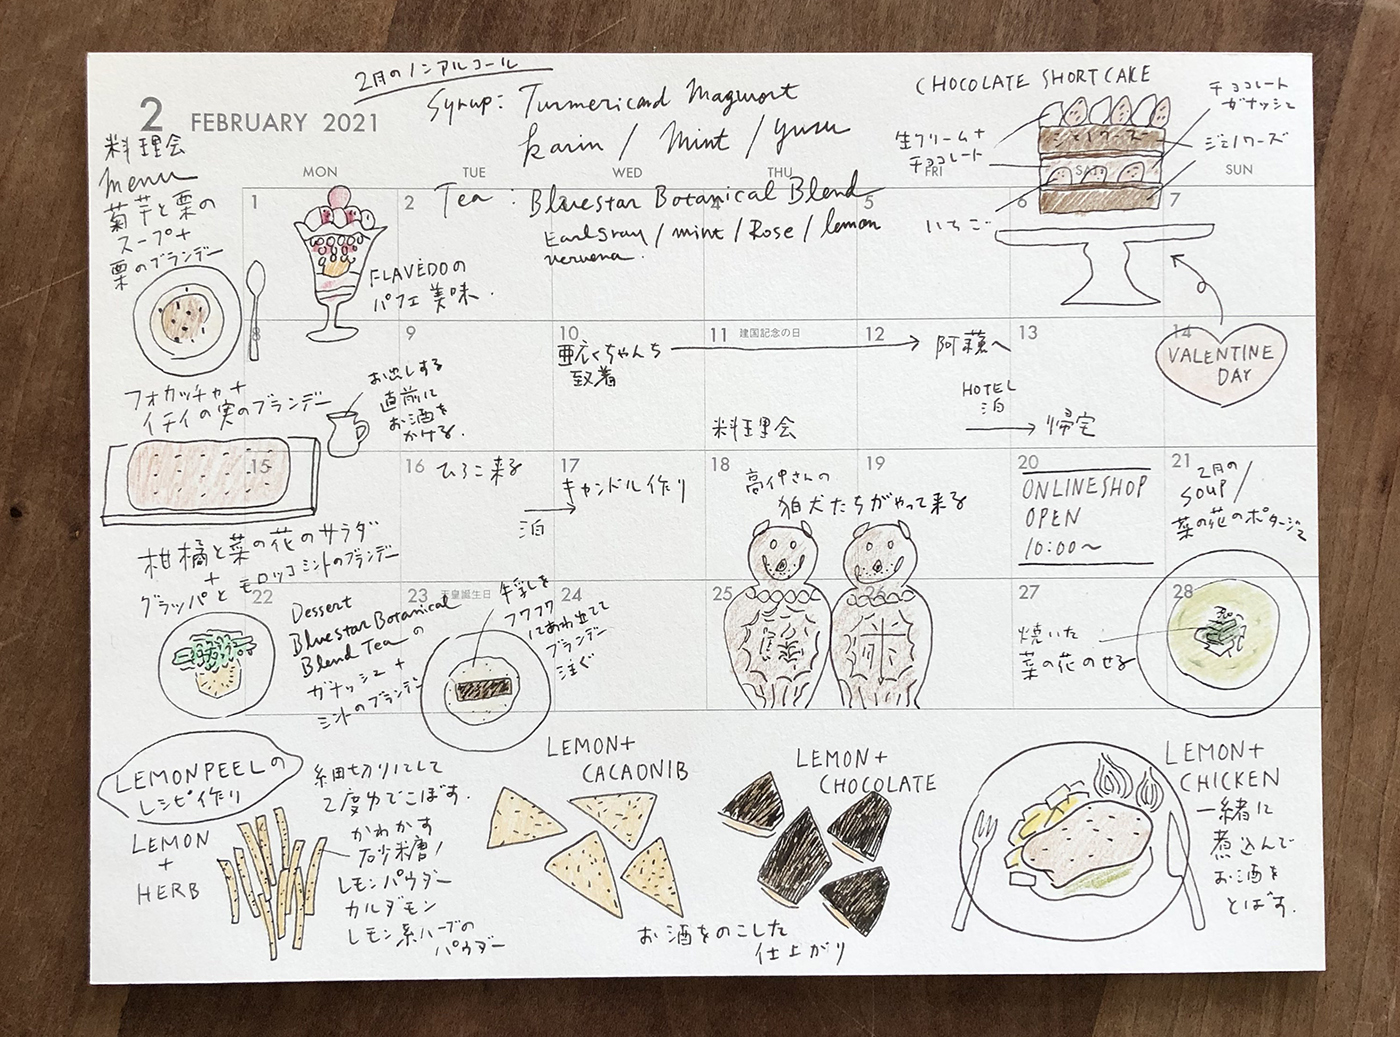 2月のノンアルコール
Syrup: Turmericand Magwort
karin / Mint / yuzu
Tea : Bluestar Botanical Blend
Earlgray / mint / Rose / lemon
vervena.
CHOCOLATE SHORTCAKE
チョコレート
ガナッシュ
生クリーム+
チョコレート
ジェノワーズ
ジェノワーズ
いちご
2 FEBRUARY 2021
MON TUE WED THU FRI SAT SUN
料理会
menu
菊芋と栗の
スープ+
栗のブランデー
1 2 3 4 5 6 7
FLAVEDOの
パフェ美味.
8 9 10 11 建国記念の日 12 13 14
ちゃんち
到着
阿蘇へ
HOTEL
泊
帰宅
料理会
VALENTINE
DAY
フォカッチャ+
イチイの実のブランデー
お出しする
直前に
お酒を
かける.
15 16 17 18 19 20 21
ひろこ来る
泊
キャンドル作り
さんの
狛犬たちがやって来る
ONLINESHOP
OPEN
10:00〜
2月の
SOUP/
菜の花のポタージュ
柑橘と菜の花のサラダ
+
グラッパとモロッコミントのブランデー
22 23 天皇誕生日 24 25 26 27 28
Dessert
Bluestar Botanical
Blend Teaの
ガナッシュ+
ミントのブランデー
牛乳を
フワフワ
にあわ立てて
ブランデー
注ぐ
焼いた
菜の花のせる
LEMONPEELの
レシピ作り
LEMON
+
HERB
細切りにして
2度ゆでこぼす.
かわかす
砂糖/
レモンパウダー
カルダモン
レモン系ハーブの
パウダー
LEMON+
CACAONIB
LEMON+
CHOCOLATE
お酒をのこした
仕上がり
LEMON+
CHICKEN
一緒に
煮込んで
お酒を
とばす.